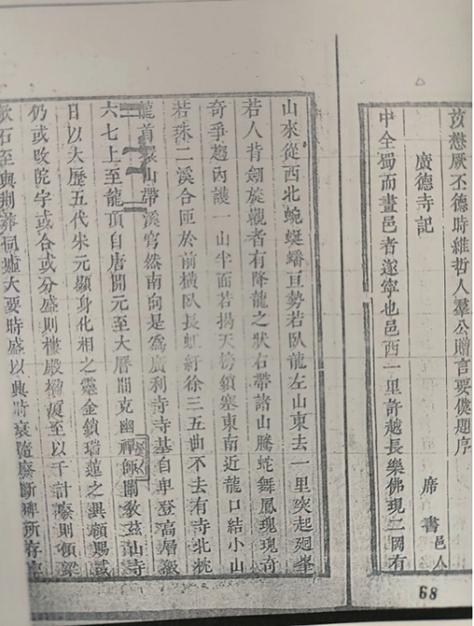 茂懋厥丕德時維哲人羣公贈言要僕題序
廣德寺記
席書邑人
中全蜀而畫邑者遂寧也邑西一里許越長樂佛現二岡有
山來從西北蜿蜒蟠亘勢若臥龍左山東去一里突起廻峯
若人背劍旋觀者有降龍之狀右帶諸山騰蛇舞鳳瑰瑰奇
奇爭趨內護一山坐面若揭天榜鎖塞東南近龍口結小山
若珠二溪合匝於前橫臥長虹紆徐三五曲不去有寺北枕
龍首眾山帶溪窅然南向是爲廣利寺寺基自卑登高層級
六七上至龍頂自唐開元至大曆間克幽禪師闡教茲山寺
日以大歷五代宋元顯身化相之靈金鎖瑞蓮之異額賜
仍或改院字或合或分盛則樓殿至以千計廢則頹梁
石至與荆莽同墟大要時盛以興時衰隨廢斷碑所存
68